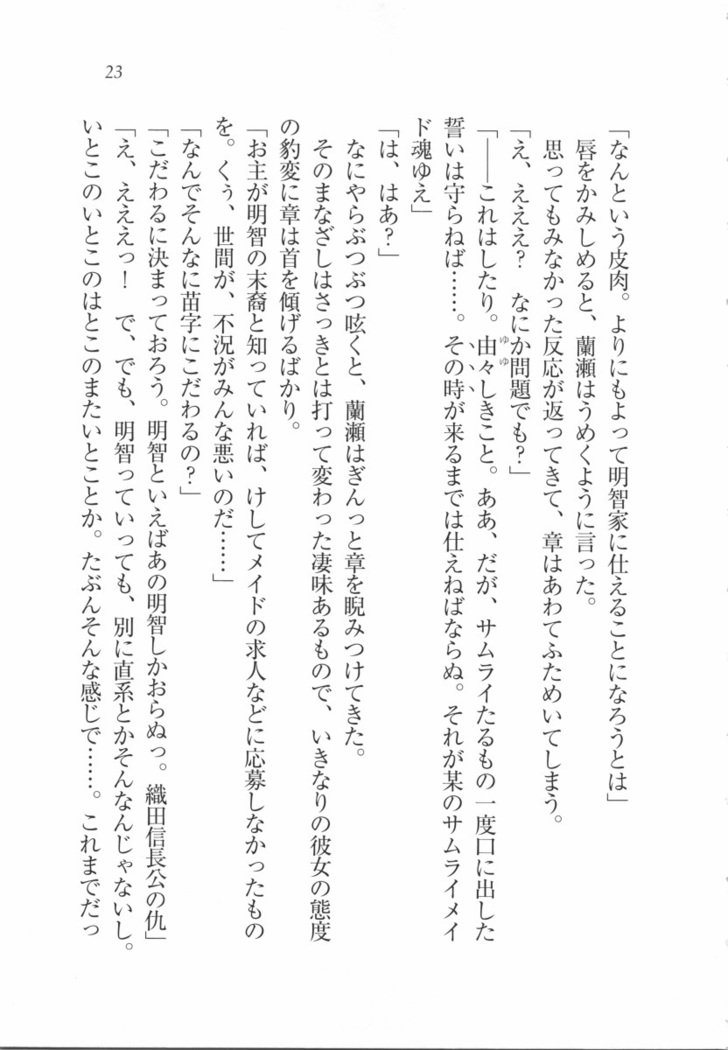 23
「なんという皮肉。よりにもよって明智家に仕えることになろうとは」
唇をかみしめると、蘭瀬はうめくように言った。
思ってもみなかった反応が返ってきて、章はあわてふためいてしまう。
「え、えええ？　なにか問題でも？」
「――これはしたり。由々しきこと。ああ、だが、サムライたるもの一度口に出した
誓いは守らねば……。その時が来るまでは仕えねばならぬ。それが某のサムライメイ
ド魂ゆえ」
「は、はあ？」
なにやらぶつぶつ呟くと、蘭瀬はぎんっと章を睨みつけてきた。
そのまなざしはさっきとは打って変わった凄味あるもので、いきなりの彼女の態度
の豹変に章は首を傾げるばかり。
「お主が明智の末裔と知っていれば、けしてメイドの求人などに応募しなかったもの
を。くぅ、世間が、不況がみんな悪いのだ……」
「なんでそんなに苗字にこだわるの？」
「こだわるに決まっておろう。明智といえばあの明智しかおらぬっ。織田信長公の仇」
「え、えええっ！　で、でも、明智っていっても、別に直系とかそんなんじゃないし。
いとこのいとこのはとこのまたいとことか。たぶんそんな感じで……。これまでだっ